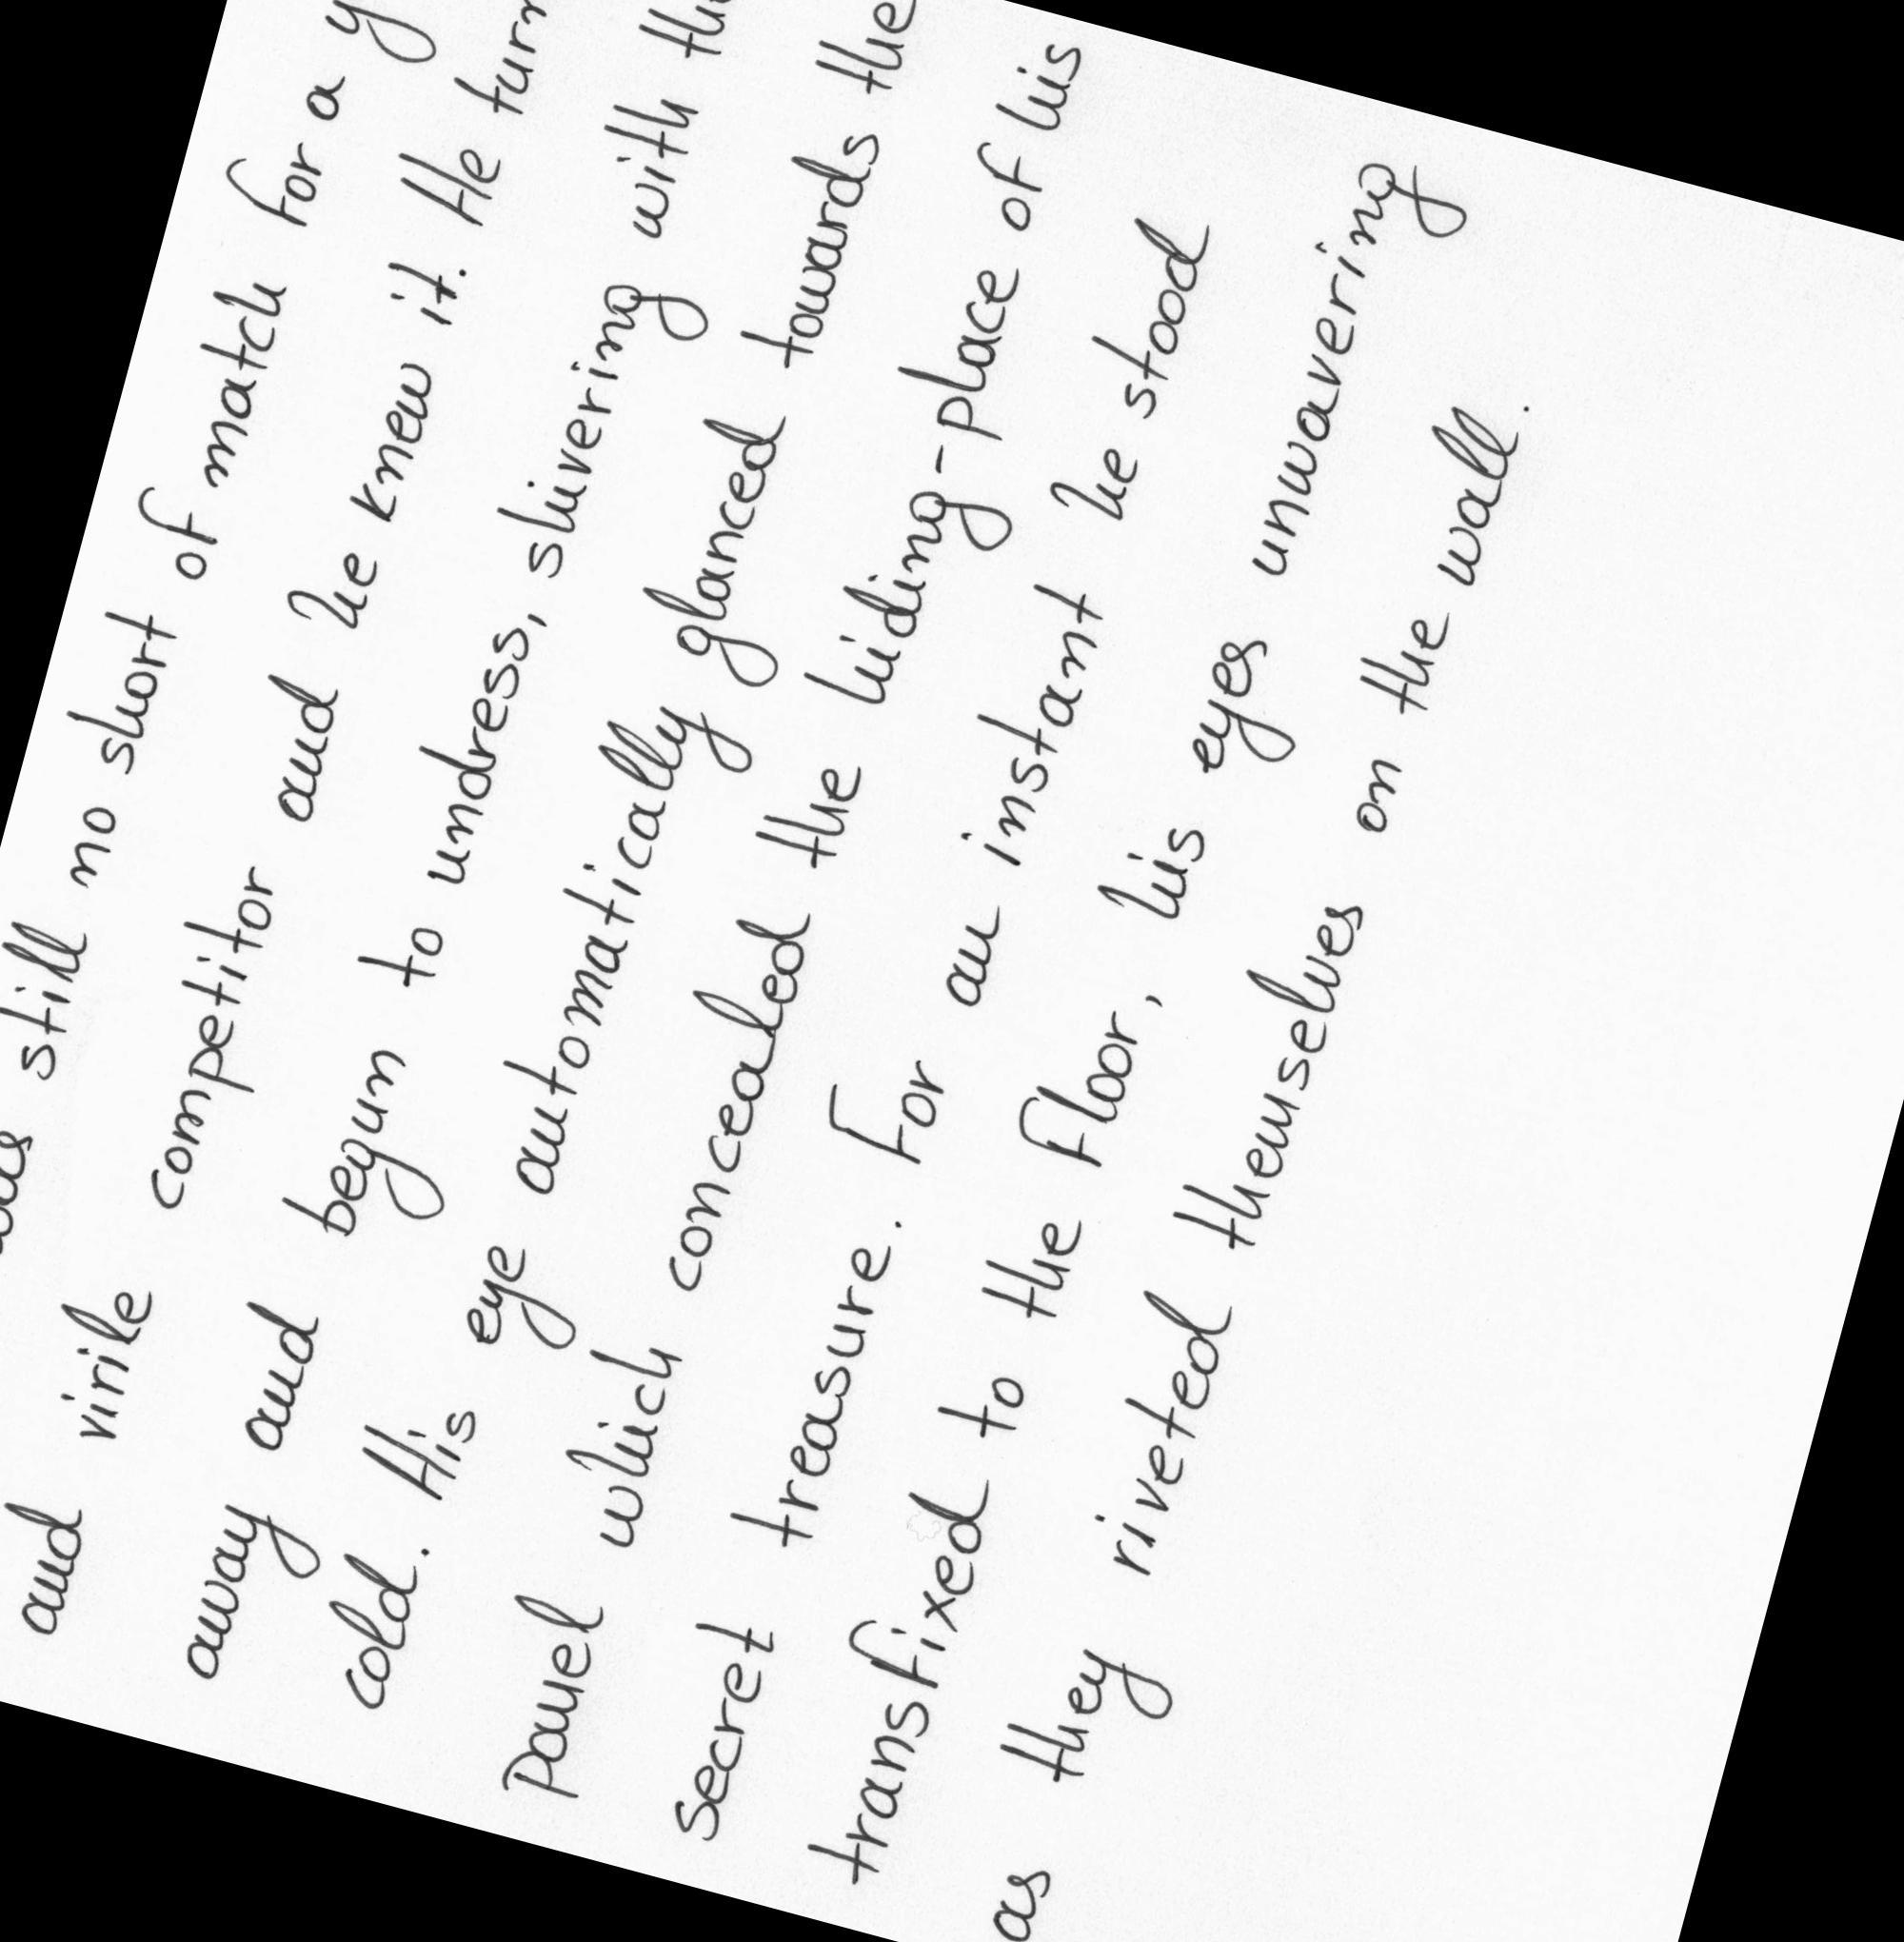 still no short of match for a
and virile competitor and he knew it. He
away and begun to undress, shivering with
cold. His eye automatically glanced towards the
panel which concealed the hiding-place of his
secret treasure. For an instant he stood
transfixed to the floor, his eyes unwavering
as they riveted themselves on the wall.